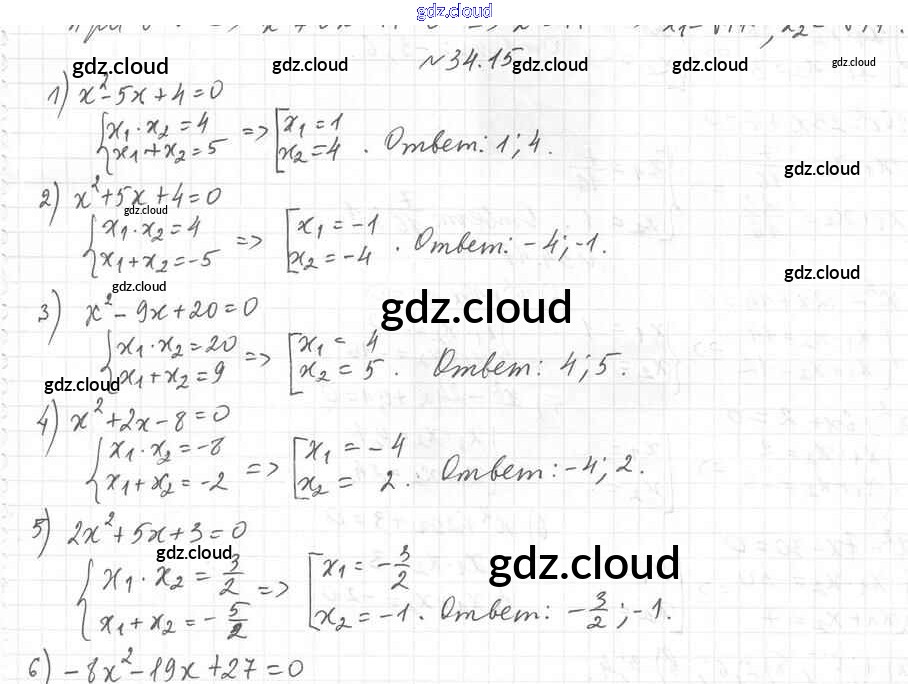 gdz.cloud
№34.15
gdz.cloud gdz.cloud gdz.cloud gdz.cloud gdz.cloud
1) x²-5x+4=0
{x₁·x₂=4 => [x₁=1
{x₁+x₂=5 [x₂=4. Ответ: 1; 4.
gdz.cloud
2) x²+5x+4=0
gdz.cloud
{x₁·x₂=4 => [x₁=-1
{x₁+x₂=-5 [x₂=-4. Ответ: -4; -1.
gdz.cloud
gdz.cloud
3) x²-9x+20=0
gdz.cloud
{x₁·x₂=20 => [x₁=4
{x₁+x₂=9 [x₂=5. Ответ: 4; 5.
gdz.cloud
4) x²+2x-8=0
{x₁·x₂=-8 => [x₁=-4
{x₁+x₂=-2 [x₂=2. Ответ: -4; 2.
5) 2x²+5x+3=0
gdz.cloud
gdz.cloud
{x₁·x₂=3/2 => [x₁=-3/2
{x₁+x₂=-5/2 [x₂=-1. Ответ: -3/2; -1.
6) -8x²-19x+27=0